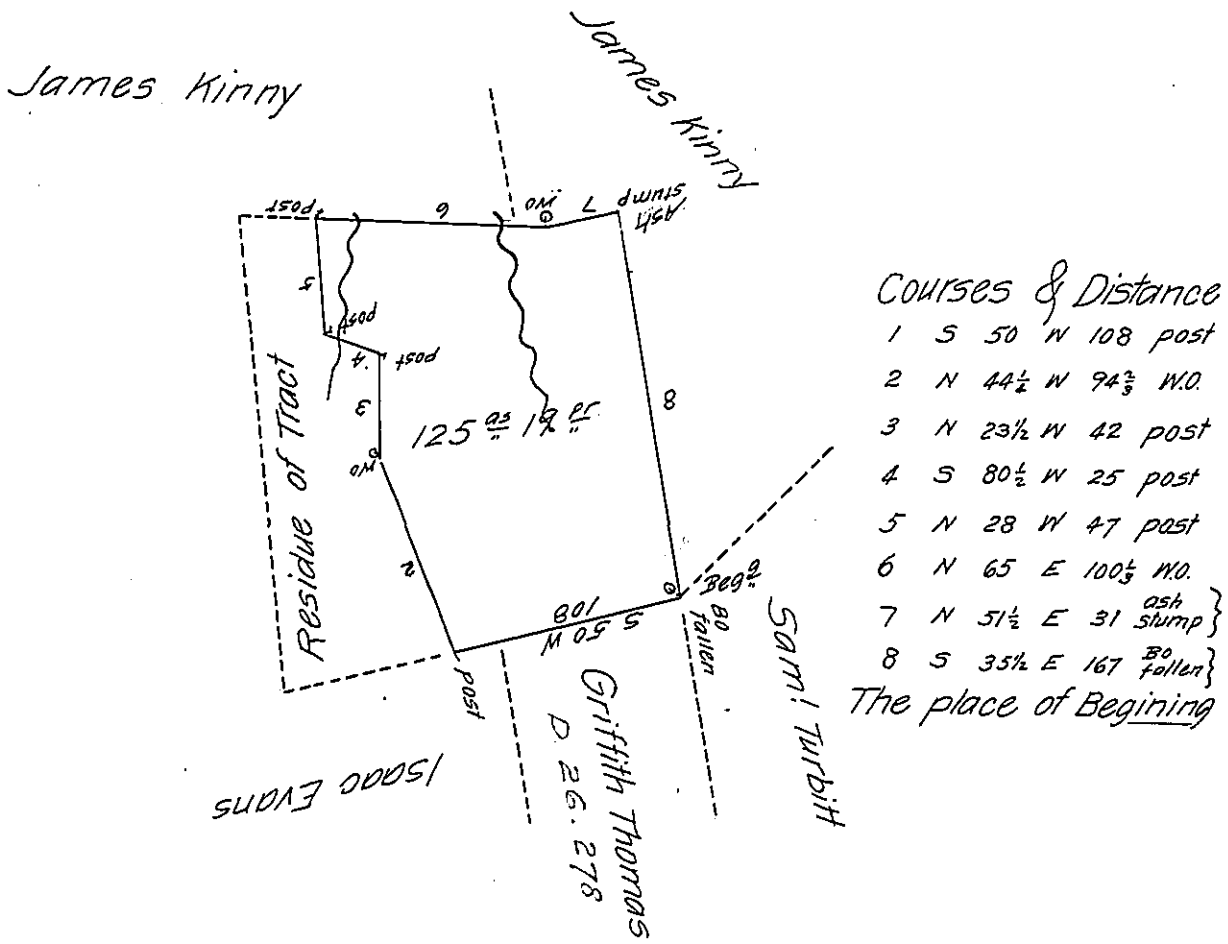 James Kinny
James Kinny
post
6
WO
7
Ash
stump
5
post
4
post
3
WO
Residue of Tract
125 as 19 pr
8
2
Beg g
BO
fallen
S 50 W
108
post
Isaac Evans
Griffith Thomas
D. 26. 278
Saml Turbitt
Courses & Distance
1 S 50 W 108 post
2 N 44¼ W 94⅔ W.O.
3 N 23½ W 42 post
4 S 80½ W 25 post
5 N 28 W 47 post
6 N 65 E 100⅓ W.O.
7 N 51½ E 31 ash stump }
8 S 35½ E 167 BO fallen }
The place of Begining